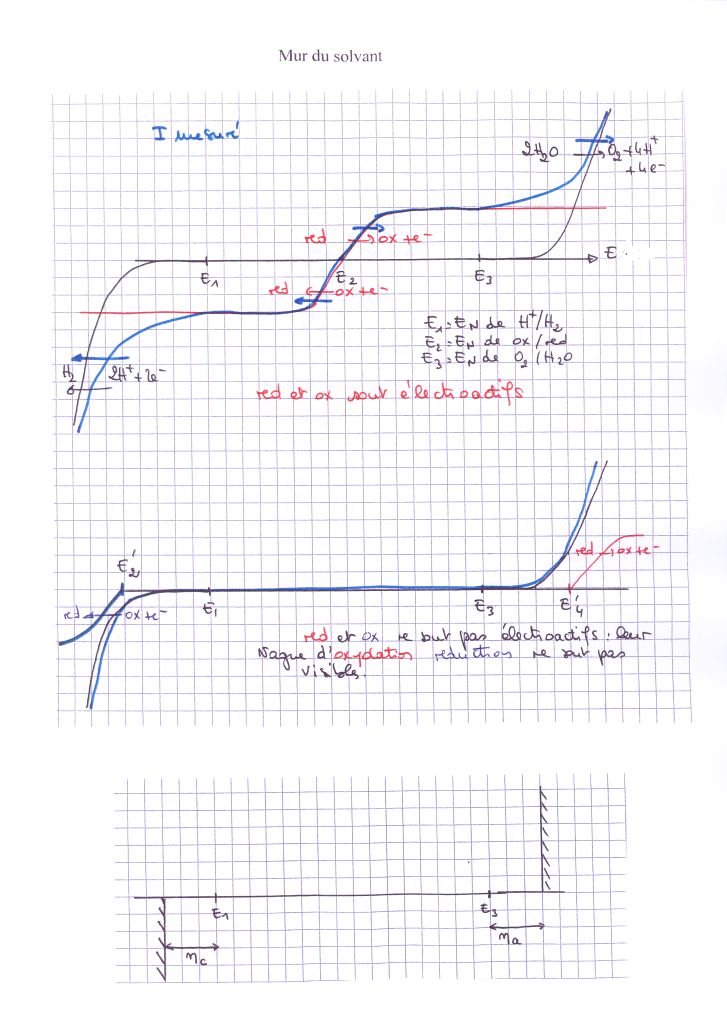 Mur du solvant
I mesuré
2H2O → O2 + 4H+
+ 4e-
red → ox + e-
E
E1
E2
E3
red ← ox + e-
E1 = EN de H+/H2
E2 = EN de ox/red
E3 = EN de O2/H2O
H2
2H+ + 2e-
red et ox sont électroactifs
E'2
red → ox + e-
red ← ox + e-
E1
E3
E'4
red et ox ne sont pas électroactifs : leur
vague d'oxydation réduction ne sont pas
visibles.
E1
E3
ηc
ηa